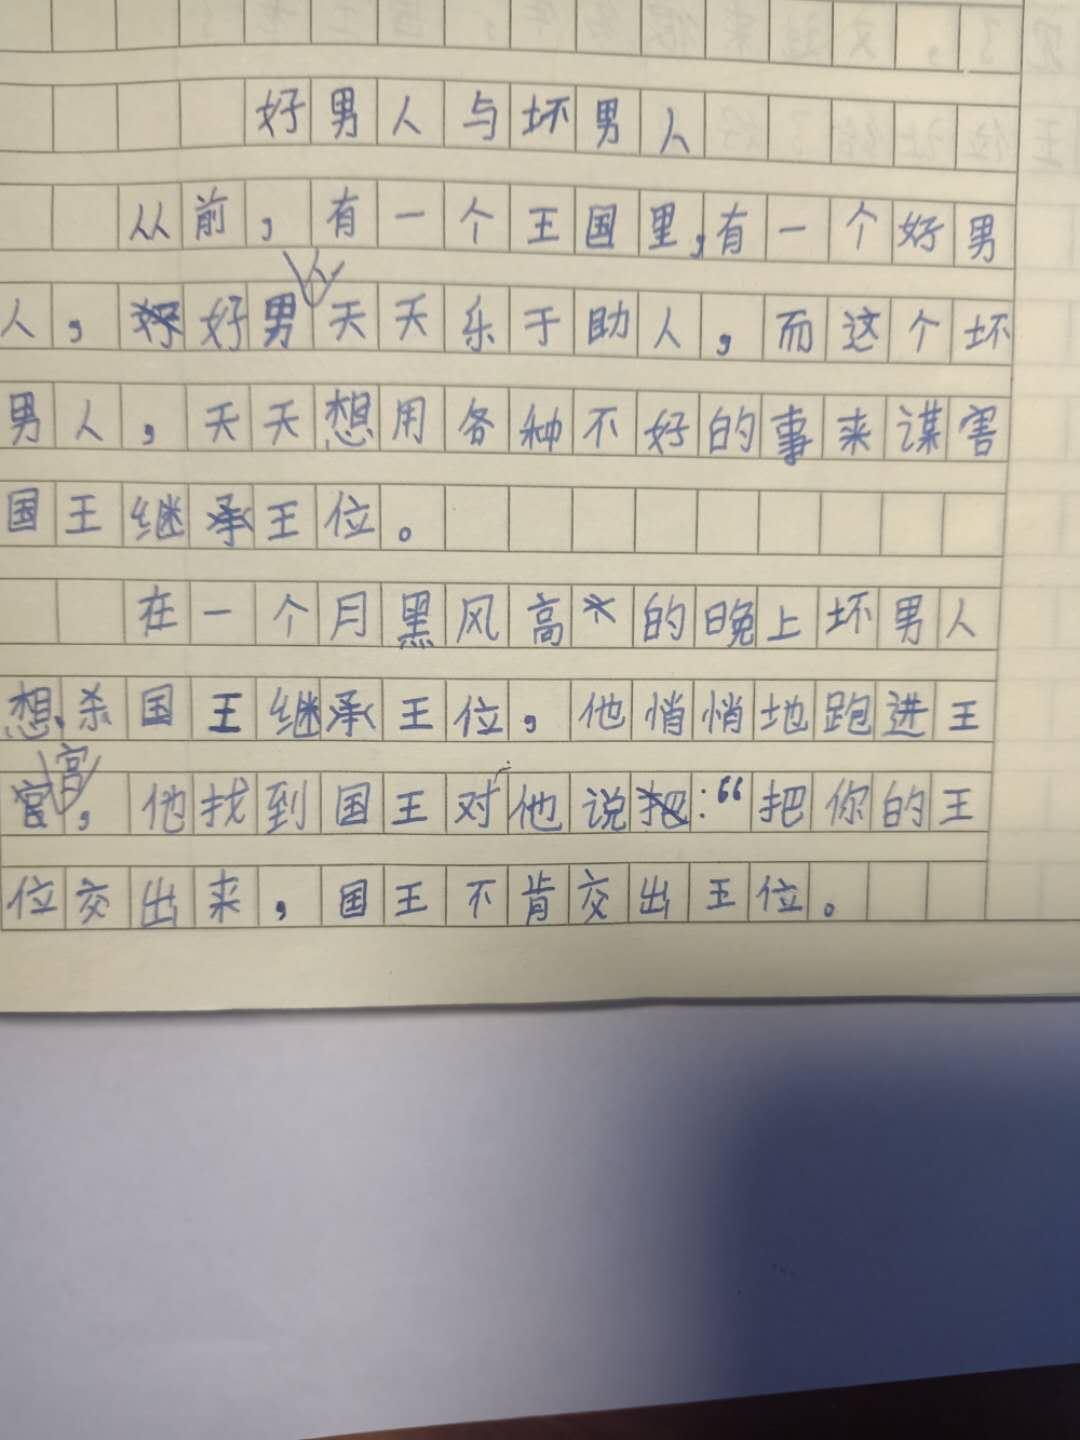 好男人与坏男人
从前，有一个王国里，有一个好男
人，好男人天天乐于助人，而这个坏
男人，天天想用各种不好的事来谋害
国王继承王位。
在一个月黑风高的晚上坏男人
想杀国王继承王位，他悄悄地跑进王
宫，他找到国王对他说：“把你的王
位交出来，国王不肯交出王位。